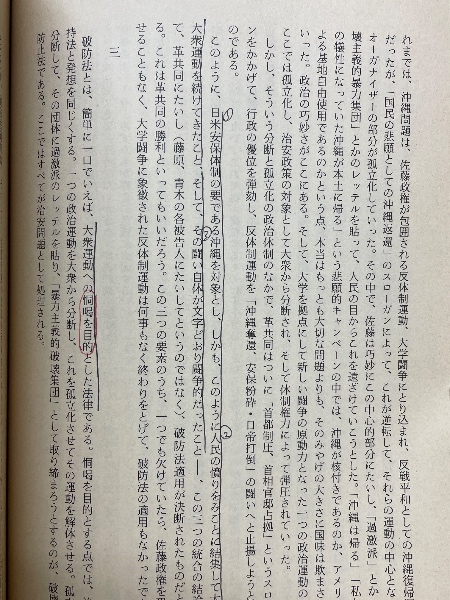 れまでは、沖縄問題は、佐藤政権が包囲される反体制運動、大学闘争にとり込まれ、反戦平和としての沖縄復帰
だったが、「国民の悲願としての沖縄返還」のスローガンによって、これが逆転して、それらの運動の中心とな
オーガナイザーの部分が孤立化していった。その中で、佐藤は巧妙にこの中心的部分にたいし、「過激派」とか
壊主義的暴力集団」とかのレッテルを貼って、人民の目からこれを遠ざけていこうとした。「沖縄は帰る」「私
の犠牲になっていた沖縄が本土に帰る」という悲願的キャンペーンの中では、沖縄が核付きであるのか、アメリ
よる基地自由使用であるのかという点、本当はもっとも大事な問題よりも、そのみやげの大きさに国味は欺まさ
いった。政治の巧妙さがここにある。そして、大学を拠点にして新しい闘争の原動力となった一つの政治運動の
ここでは孤立化し、治安政策の対象として大衆から分断され、そして体制権力によって弾圧されていった。
しかし、そういう分断と孤立化の政治体制のなかで、革共同はついに「首都制圧、首相官邸占拠」というスロ
ンをかかげて、行政の優位を弾劾し、反体制運動を「沖縄奪還、安保粉砕・日帝打倒」の闘いへと止揚しようと
のである。
このように、①日米安保体制の要である沖縄を対象とし、しかも、②このように人民の憤りをみごとに結集して
大衆運動を続けてきたこと、そして、③その闘い自体が文字どおり闘争的だったこと――、この三つの統合の結論
て、革共同にたいし(藤原、青木の各被告人にたいしてというのではなく)、破防法適用が決断されたものだと
る。これは革共同の勝利といってもいいだろう。この三つの要素のうち、一つでも欠けていたら、佐藤政権を
せることもなく、大学闘争に象徴された反体制運動は何事もなく終わりをとげて、破防法の適用もなかったで
三
破防法とは、簡単に一口でいえば、大衆運動への恫喝を目的とした法律である。恫喝を目的とする点では、
持法と発想を同じくする。一つの政治運動を大衆から分断し、これを孤立化させてその運動を解体させる。孤
分断して、その団体に過激派のレッテルを貼り、「暴力主義的破壊集団」として取り締まろうとするのが、破
防止法である。ここではすべてが治安問題として処理される。